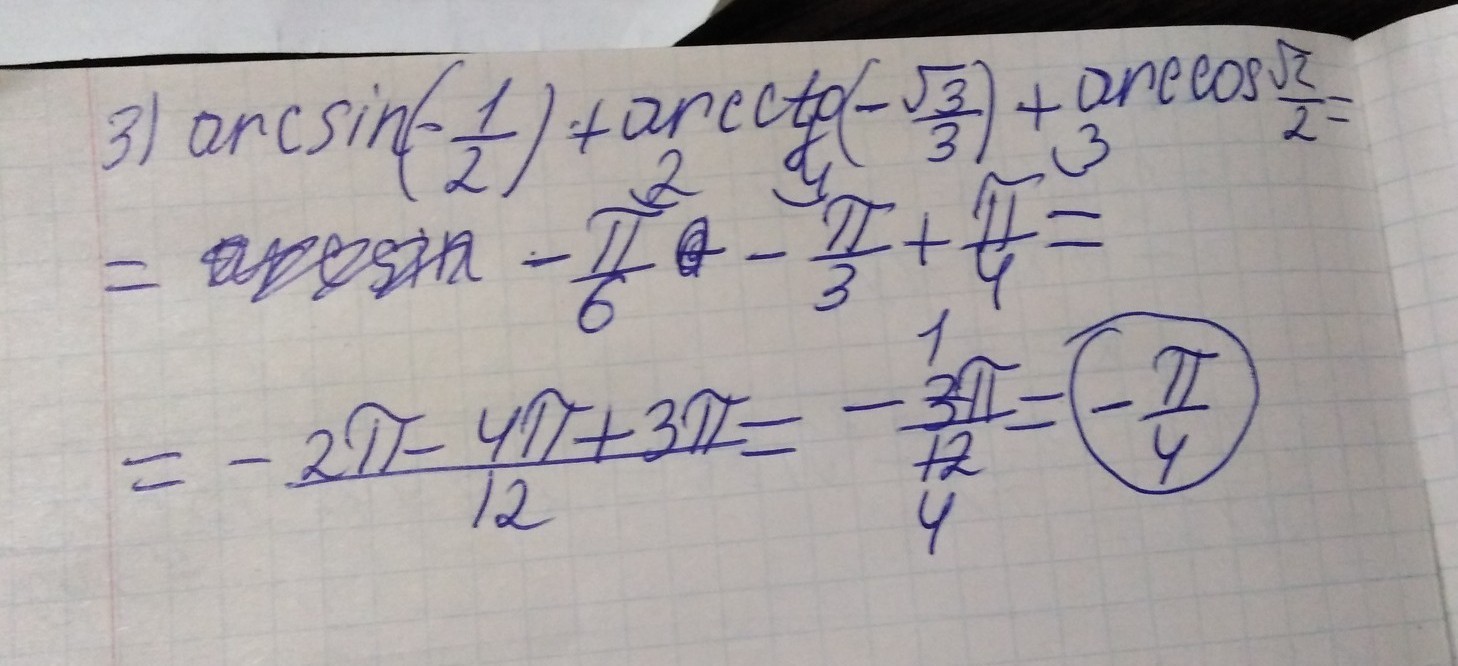 3) arcsin(-1/2) + arcctg(-√3/3) + arccos √2/2 =
= - π/6 - π/3 + π/4 =
= - 2π - 4π + 3π/12 = - 3π/12 = - π/4